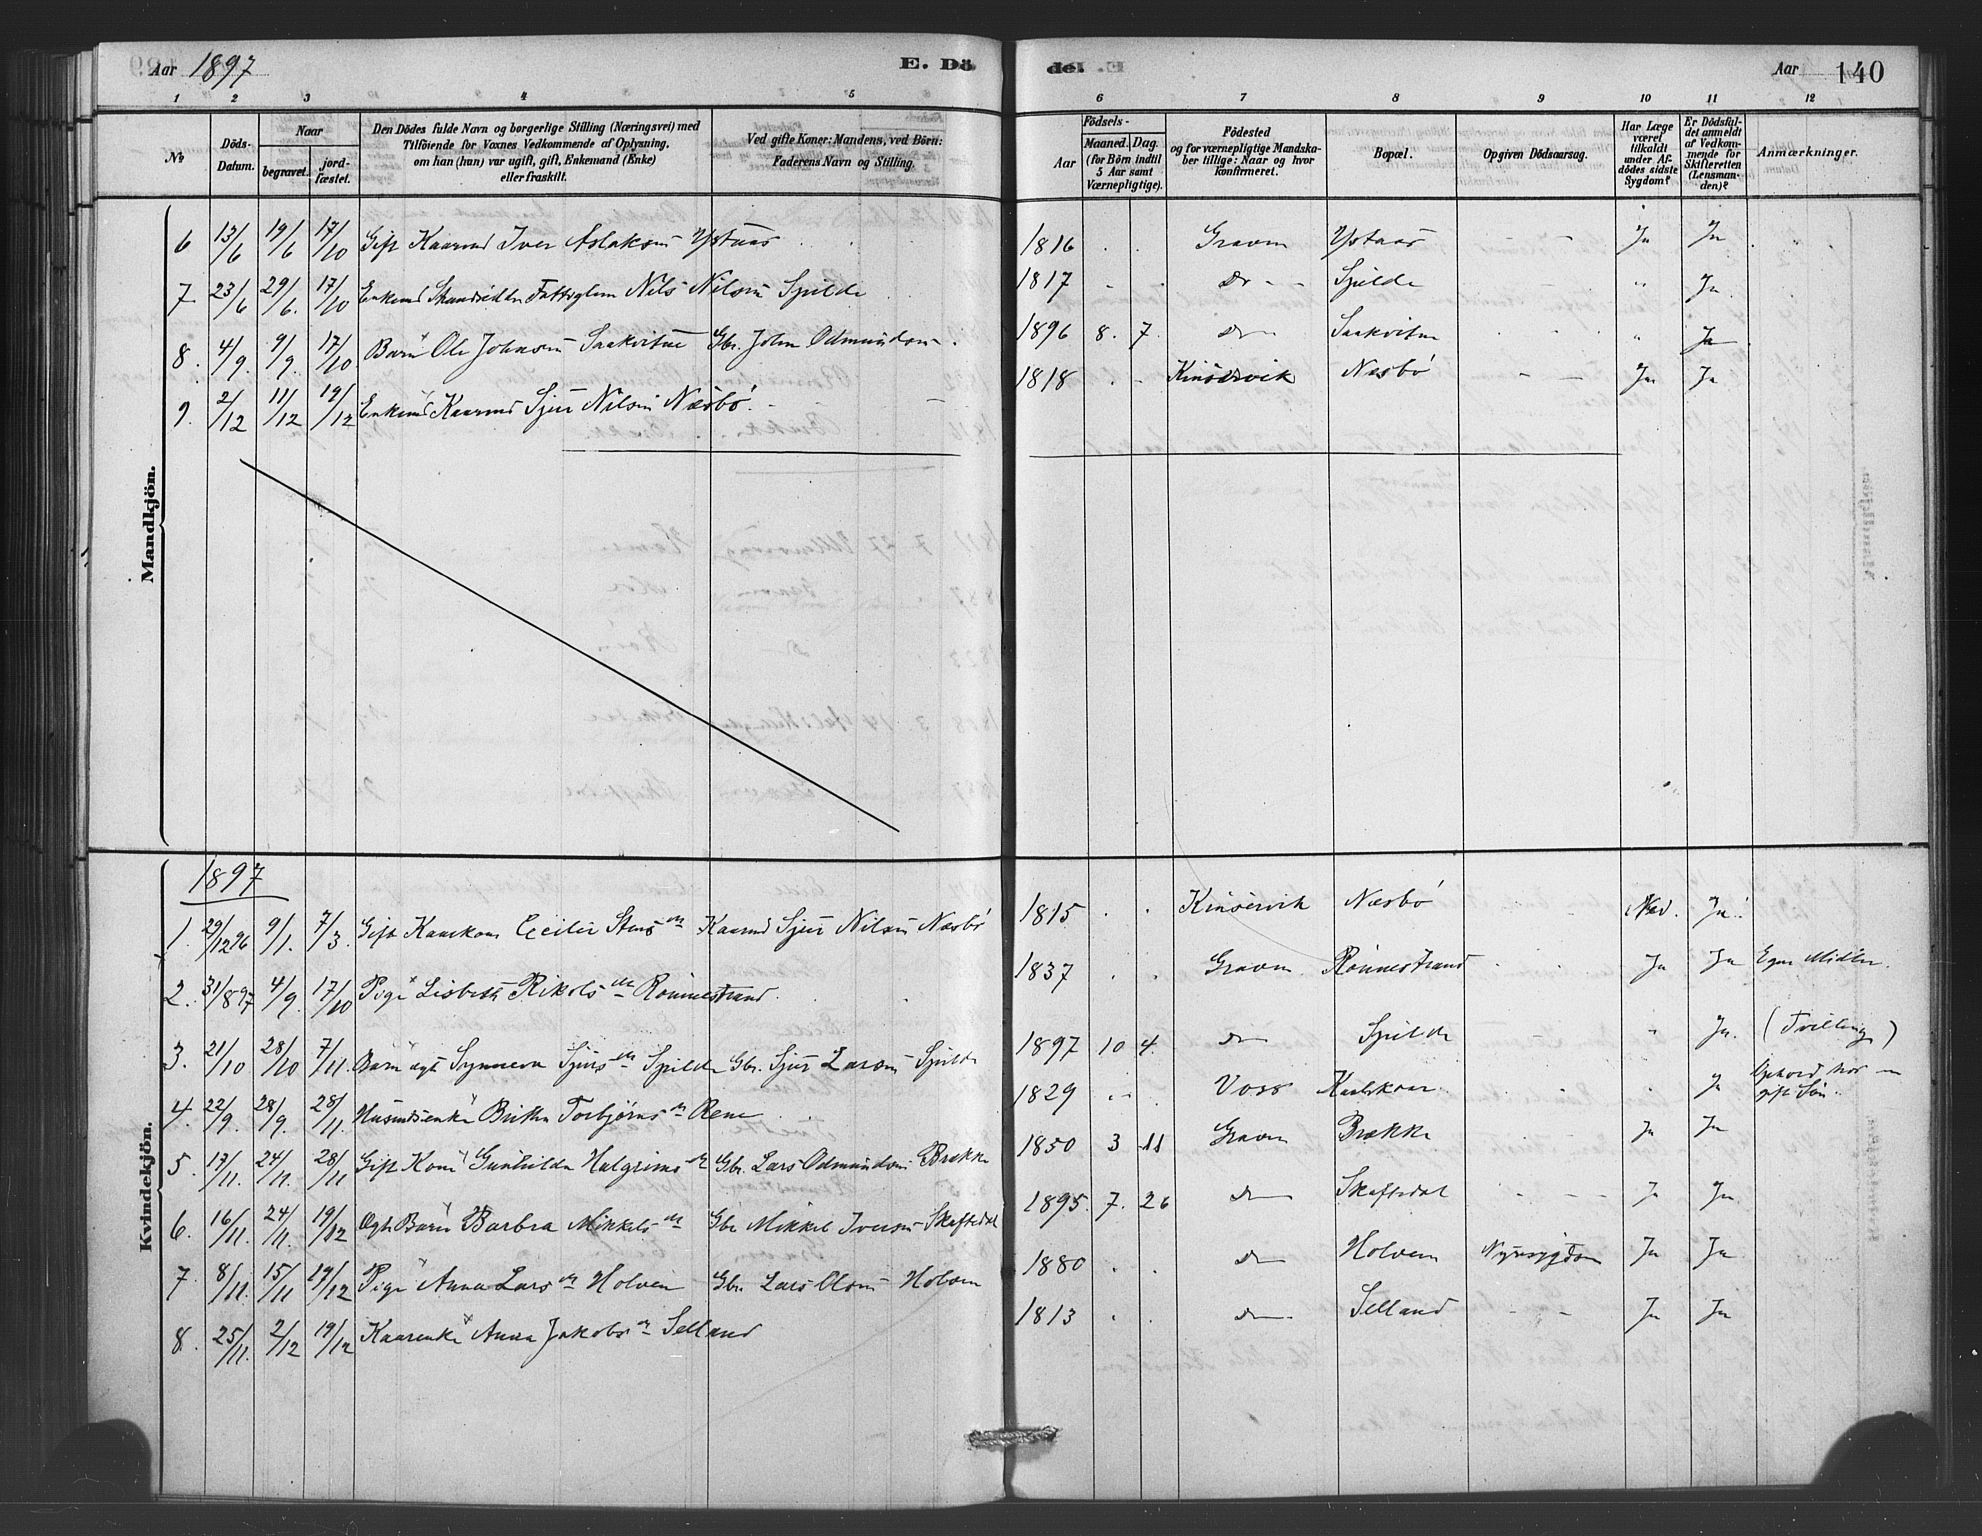 Aar 1897 E. Dö del. Aar 140
1 2 3 4 5 6 7 8 9 10 11 12
No Döds-Datum. Naar begravet. jordfæstet. Den Dödes fulde Navn og borgerlige Stilling (Næringsvei) med Tilföiende for Voxnes Vedkommende af Oplysning, om han (hun) var ugift, gift, Enkemand (Enke) eller fraskilt. Ved gifte Koner: Mandens, ved Börn: Faderens Navn og Stilling. Födsels- Aar Maaned. Dag. (for Börn indtil 5 Aar samt Værnepligtige). Födested og for værnepligtige Mandskaber tillige: Naar og hvor konfirmeret. Bopæl. Opgiven Dödsaarsag. Har Læge været tilkaldt under Afdödes sidste Sygdom? Er Dödsfaldet anmeldt af Vedkommende for Skifteretten (Lensmanden)? Anmærkninger.
Mandkjön.
6 13/6 19/6 17/10 Gift Kaarmd Iver Aslaksen Ystaas 1816 Graven Ystaas Ja Ja
7 23/6 29/6. 17/10 Nils Nilsen Spilde 1817 Do Spilde " Ja
8. 4/9. 9/9. 17/10 Barn Ole Johnsen Saakvitne Gbr. John Odmundsen 1896 8. 7. Do Saakvitne " Ja
9. 2/12 11/12 19/12 Enkemd Kaarmd Sjur Nilsen Næsbö. 1818 Kinservik Næsbö Ja Ja
Kvindekjön.
1897
1. 29/12 96 9/1. 7/3. Gift Kaarkone Cecilie Stens dr Kaarmd Sjur Nilsen Næsbö 1815 Kinservik Næsbö Nei. Ja
2. 31/8 97 4/9. 17/10 Pige Lisbeth Rikolsdr Rönnestrand. 1837 Graven Rönnestrand Ja Ja Egne Midler.
3. 21/10 28/10 7/11. Barn ægt Synneva Sjursdr Spilde Gbr. Sjur Larsen Spilde 1897 10 4. do Spilde " Ja. (Tvilling)
4. 22/9. 28/9. 28/11. Husmdsenke Britha Torbjörnsdr Rene 1829 Voss " Ja Ophold hos gift Sön.
5. 17/11. 24/11. 28/11 Gift Kone Gunhilda Halgrimsdr Gbr. Lars Odmundsen Brække 1850 3 11 Graven Brække Ja Ja
6. 16/11. 24/11. 19/12 Ægte Barn Barbra Mikkelsdr Gbr Mikkel Iversen Skaftedal 1895. 7. 26 do Skaftedal Ja Ja
7. 8/11. 15/11 19/12 Pige Anna Larsdr Holven Gbr. Lars Olsen Holven 1880 do Holven Nyresygdom Ja Ja
8. 25/11. 2/12 19/12 Kaarenke Anna Jakobsdr Selland 1813 do Selland Ja Ja